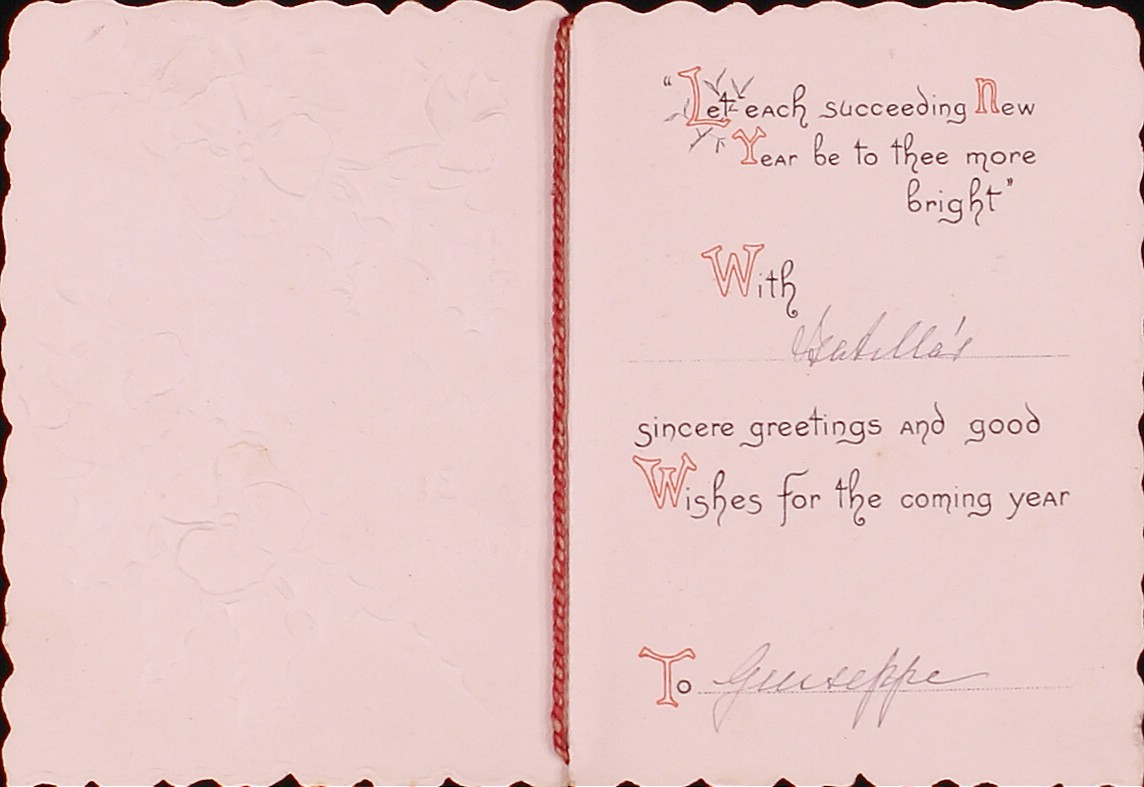 "Let each succeeding New
Year be to thee more
bright"
With
Isabella's
sincere greetings and good
Wishes for the coming year
To Giuseppe